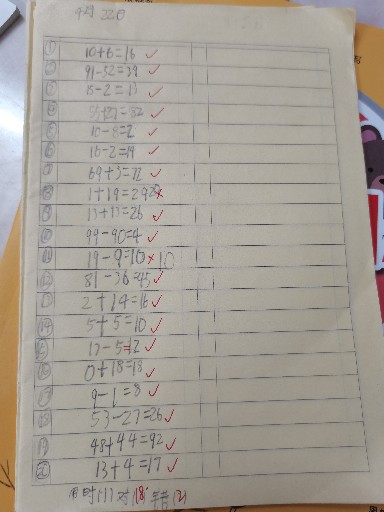 4月22日
① 10+6=16 ✓
② 91-52=39 ✓
③ 15-2=13 ✓
④ 55+27=82 ✓
⑤ 10-8=2 ✓
⑥ 16-2=14 ✓
⑦ 69+3=72 ✓
⑧ 1+19=29 20 ×
⑨ 13+13=26 ✓
⑩ 94-90=4 ✓
⑪ 19-9=10 × 10
⑫ 81-36=45 ✓
⑬ 2+14=16 ✓
⑭ 5+5=10 ✓
⑮ 17-5=12 ✓
⑯ 0+18=18 ✓
⑰ 9-1=8 ✓
⑱ 53-27=26 ✓
⑲ 48+44=92 ✓
⑳ 13+4=17 ✓
用时( ) 对(18) 错(2)